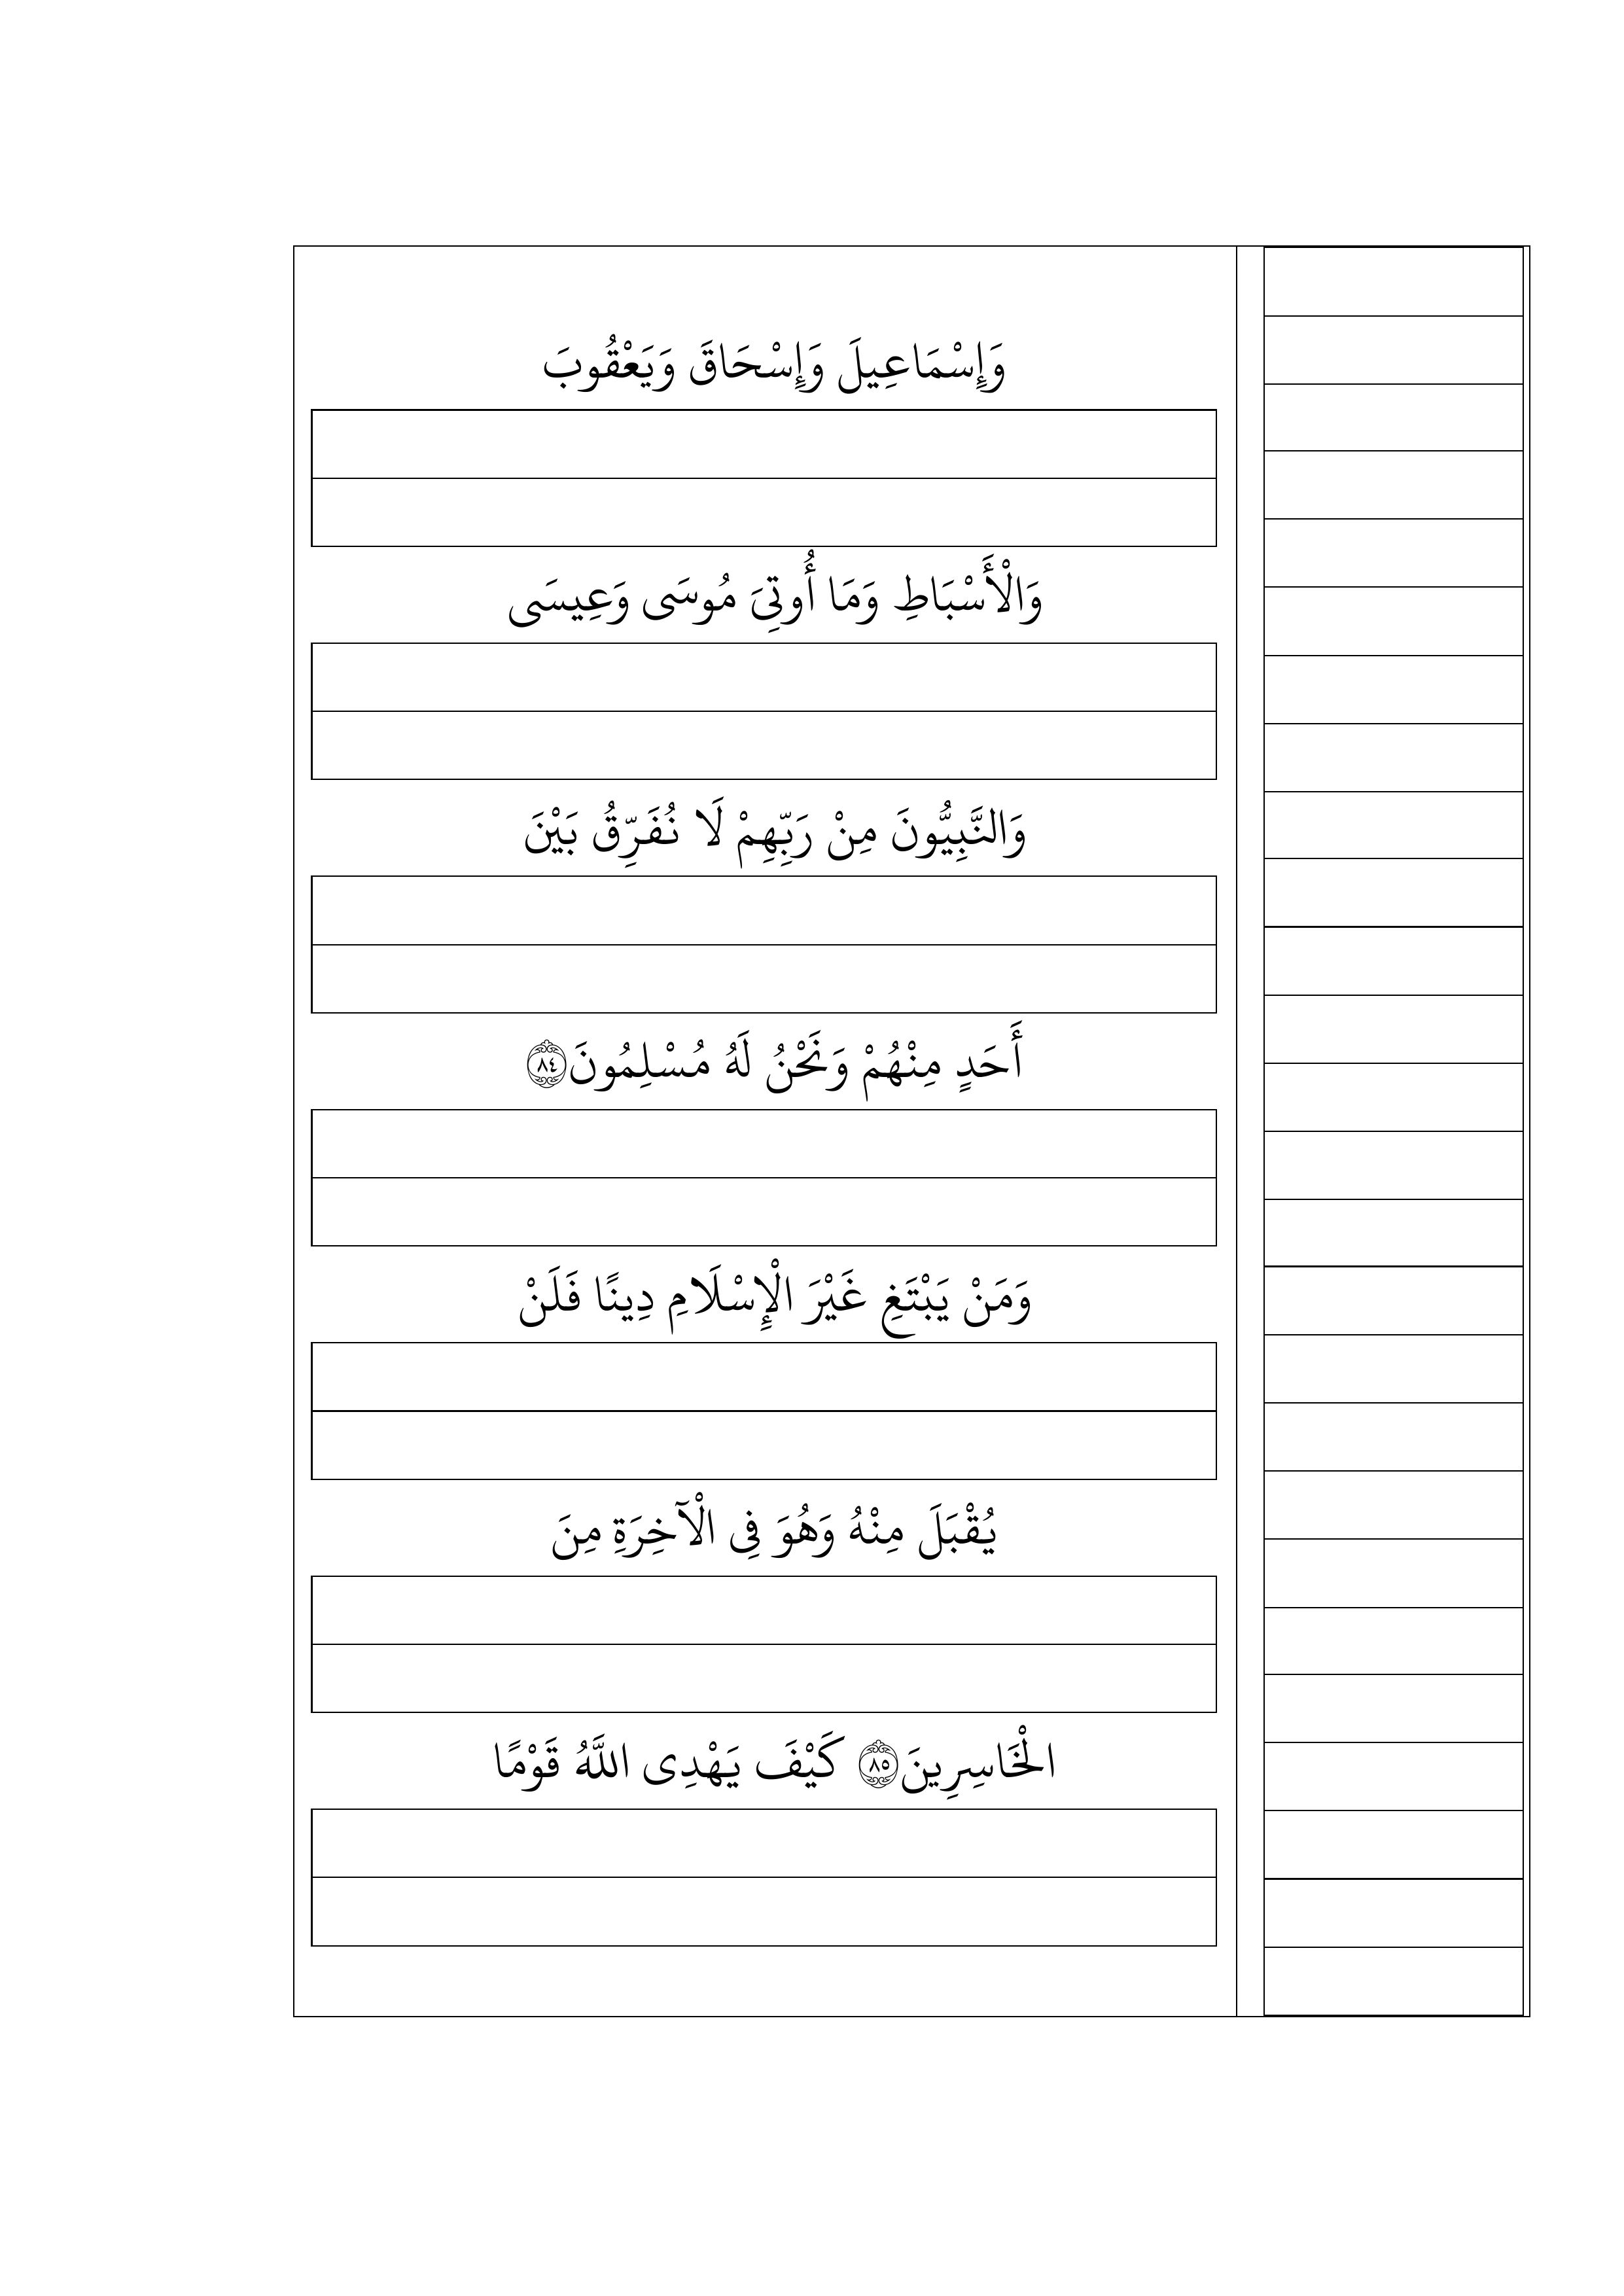 وَإِسْمَاعِيلَ وَإِسْحَاقَ وَيَعْقُوبَ
وَالْأَسْبَاطِ وَمَا أُوتِىَ مُوسَى وَعِيسَى
وَالنَّبِيُّونَ مِنْ رَبِّهِمْ لَا نُفَرِّقُ بَيْنَ
أَحَدٍ مِنْهُمْ وَنَحْنُ لَهُ مُسْلِمُونَ ﴿٨٤﴾
وَمَنْ يَبْتَغِ غَيْرَ الْإِسْلَامِ دِينًا فَلَنْ
يُقْبَلَ مِنْهُ وَهُوَ فِى الْآخِرَةِ مِنَ
الْخَاسِرِينَ ﴿٨٥﴾ كَيْفَ يَهْدِى اللَّهُ قَوْمًا